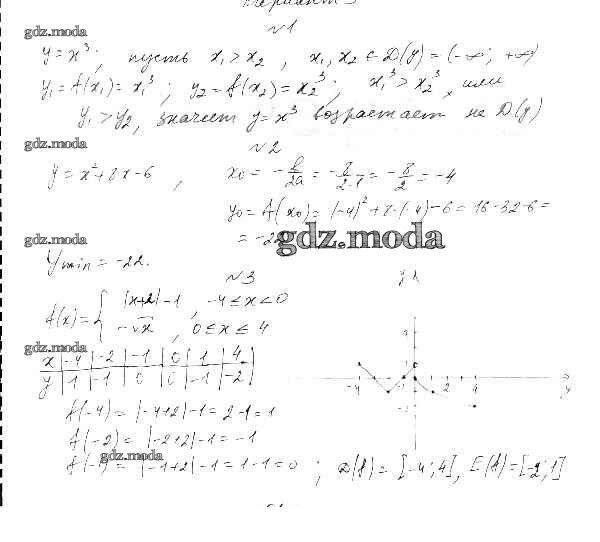 Вариант 3
№1
gdz.moda
y=x³; пусть x₁>x₂, x₁,x₂∈D(y)=(-∞; +∞)
y₁=f(x₁)=x₁³; y₂=f(x₂)=x₂³; x₁³>x₂³, или
y₁>y₂, значит y=x³ возрастает на D(y)
gdz.moda
№2
y=x²+8x-6, x₀=-b/2a=-8/2·1=-8/2=-4
y₀=f(x₀)=(-4)²+8·(-4)-6=16-32-6=
gdz.moda
=-22
gdz.moda
y min=-22.
№3
f(x)={ |x+2|-1, -4≤x<0
-√x, 0≤x≤4
gdz.moda
x | -4 | -2 | -1 | 0 | 1 | 4
y | 1 | -1 | 0 | 0 | -1 | -2
f(-4)=|-4+2|-1=2-1=1
f(-2)=|-2+2|-1=-1
gdz.moda
f(-1)=|-1+2|-1=1-1=0; D(f)=[-4;4], E(f)=[-2;1]